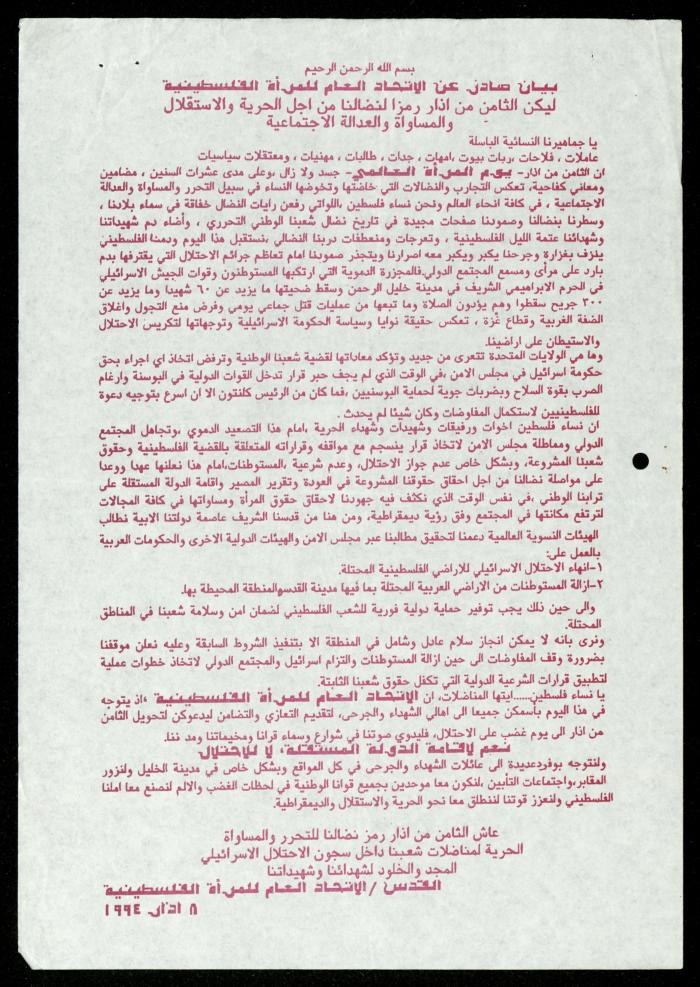 بسم الله الرحمن الرحيم
بيان صادر عن الاتحاد العام للمرأة الفلسطينية
ليكن الثامن من اذار رمزا لنضالنا من اجل الحرية والاستقلال
والمساواة والعدالة الاجتماعية
يا جماهيرنا النسائية الباسلة
عاملات ، فلاحات ،ربات بيوت ،امهات ، جدات ، طالبات ، مهنيات ، ومعتقلات سياسيات
ان الثامن من اذار- يوم المرأة العالمي- جسد ولا زال ،وعلى مدى عشرات السنين ، مضامين
ومعاني كفاحية، تعكس التجارب والنضالات التي خاضتها وتخوضها النساء في سبيل التحرر والمساواة والعدالة
الاجتماعية ، في كافة انحاء العالم ونحن نساء فلسطين ،اللواتي رفعن رايات النضال خفاقة في سماء بلادنا ،
وسطرنا بنضالنا وصمودنا صفحات مجيدة في تاريخ نضال شعبنا الوطني التحرري ، وأضاء دم شهيداتنا
وشهدائنا عتمة الليل الفلسطينية ، وتعرجات ومنعطفات دربنا النضالي ،نستقبل هذا اليوم ودمنا الفلسطيني
ينزف بغزارة وجرحنا يكبر ويكبر معه اصرارنا ويتجذر صمودنا امام تعاظم جرائم الاحتلال التي يقترفها بدم
بارد على مرأى ومسمع المجتمع الدولي.فالمجزرة الدموية التي ارتكبها المستوطنون وقوات الجيش الاسرائيلي
في الحرم الابراهيمي الشريف في مدينة خليل الرحمن وسقط ضحيتها ما يزيد عن ٦٠ شهيدا وما يزيد عن
٣٠٠ جريح سقطوا وهم يؤدون الصلاة وما تبعها من عمليات قتل جماعي يومي وفرض منع التجول واغلاق
الضفة الغربية وقطاع غزة ، تعكس حقيقة نوايا وسياسة الحكومة الاسرائيلية وتوجهاتها لتكريس الاحتلال
والاستيطان على اراضينا.
وها هي الولايات المتحدة تتعرى من جديد وتؤكد معاداتها لقضية شعبنا الوطنية وترفض اتخاذ اي اجراء بحق
حكومة اسرائيل في مجلس الامن ،في الوقت الذي لم يجف حبر قرار تدخل القوات الدولية في البوسنة وارغام
الصرب بقوة السلاح وبضربات جوية لحماية البوسنيين ،فما كان من الرئيس كلنتون الا ان اسرع بتوجيه دعوة
للفلسطينيين لاستكمال المفاوضات وكان شيئا لم يحدث .
ان نساء فلسطين اخوات ورفيقات وشهيدات وشهداء الحرية ،امام هذا التصعيد الدموي ،وتجاهل المجتمع
الدولي ومماطلة مجلس الامن لاتخاذ قرار ينسجم مع مواقفه وقراراته المتعلقة بالقضية الفلسطينية وحقوق
شعبنا المشروعة، وبشكل خاص عدم جواز الاحتلال، وعدم شرعية ،المستوطنات،امام هذا نعلنها عهدا ووعدا
على مواصلة نضالنا من اجل احقاق حقوقنا المشروعة في العودة وتقرير المصير واقامة الدولة المستقلة على
ترابنا الوطني ،في نفس الوقت الذي نكثف فيه جهودنا لاحقاق حقوق المرأة ومساواتها في كافة المجالات
لترتفع مكانتها في المجتمع وفق رؤية ديمقراطية، ومن هنا من قدسنا الشريف عاصمة دولتنا الابية نطالب
الهيئات النسوية العالمية دعمنا لتحقيق مطالبنا عبر مجلس الامن والهيئات الدولية الاخرى والحكومات العربية
بالعمل على:
١-انهاء الاحتلال الاسرائيلي للاراضي الفلسطينية المحتلة.
٢-ازالة المستوطنات من الاراضي العربية المحتلة بما فيها مدينة القدسوالمنطقة المحيطة بها.
والى حين ذلك يجب توفير حماية دولية فورية للشعب الفلسطيني لضمان امن وسلامة شعبنا في المناطق
المحتلة.
ونرى بانه لا يمكن انجاز سلام عادل وشامل في المنطقة الا بتنفيذ الشروط السابقة وعليه نعلن موقفنا
بضرورة وقف المفاوضات الى حين ازالة المستوطنات والتزام اسرائيل والمجتمع الدولي لاتخاذ خطوات عملية
لتطبيق قرارات الشرعية الدولية التي تكفل حقوق شعبنا الثابتة.
يا نساء فلسطين.....ايتها المناضلات، ان الاتحاد العام للمرأة الفلسطينية ،اذ يتوجه
في هذا اليوم بأسمكن جميعا الى اهالي الشهداء والجرحى، لتقديم التعازي والتضامن ليدعوكن لتحويل الثامن
من اذار الى يوم غضب على الاحتلال، فليدوي صوتنا في شوارع وسماء قرانا ومخيماتنا ومد ننا.
نعم لاقامة الدولة المستقلة، لا للاحتلال
ولنتوجه بوفودعديدة الى عائلات الشهداء والجرحى في كل المواقع وبشكل خاص في مدينة الخليل ولنزور
المقابر،واجتماعات التأبين ،لنكون معا موحدين بجميع قوانا الوطنية في لحظات الغضب والالم لنصنع معا املنا
الفلسطيني ولنعزز قوتنا لننطلق معا نحو الحرية والاستقلال والديمقراطية.
عاش الثامن من اذار رمز نضالنا للتحرر والمساواة
الحرية لمناضلات شعبنا داخل سجون الاحتلال الاسرائيلي
المجد والخلود لشهدائنا وشهيداتنا
القدس /الاتحاد العام للمرأة الفلسطينية
٨ اذار ١٩٩٤